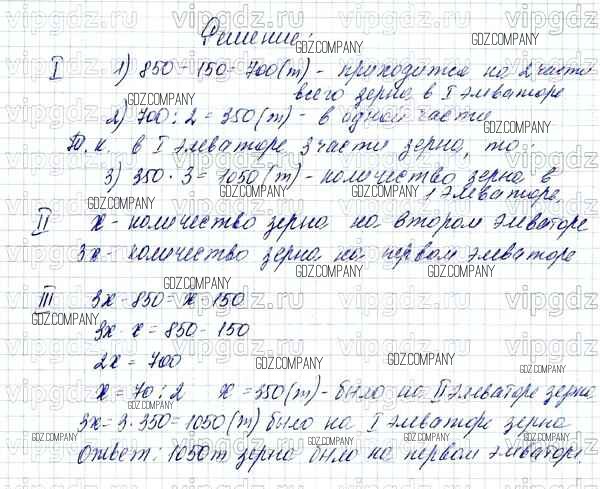 Решение:
I 1) 850 - 150 = 700 (т) - приходится на 2 части
всего зерна в I элеваторе
2) 700 : 2 = 350 (т) - в одной части
Т.к. в I элеваторе 3 части зерна, то:
3) 350 · 3 = 1050 (т) - количество зерна в
1 элеваторе.
II x - количество зерна на втором элеваторе
3x - количество зерна на первом элеваторе
III 3x - 850 = x - 150
3x - x = 850 - 150
2x = 700
x = 70 : 2 x = 350 (т) - было на II элеваторе зерна
3x = 3 · 350 = 1050 (т) было на I элеваторе зерна
Ответ: 1050 т зерна было на первом элеваторе.
vipgdz.ru
GDZ.COMPANY